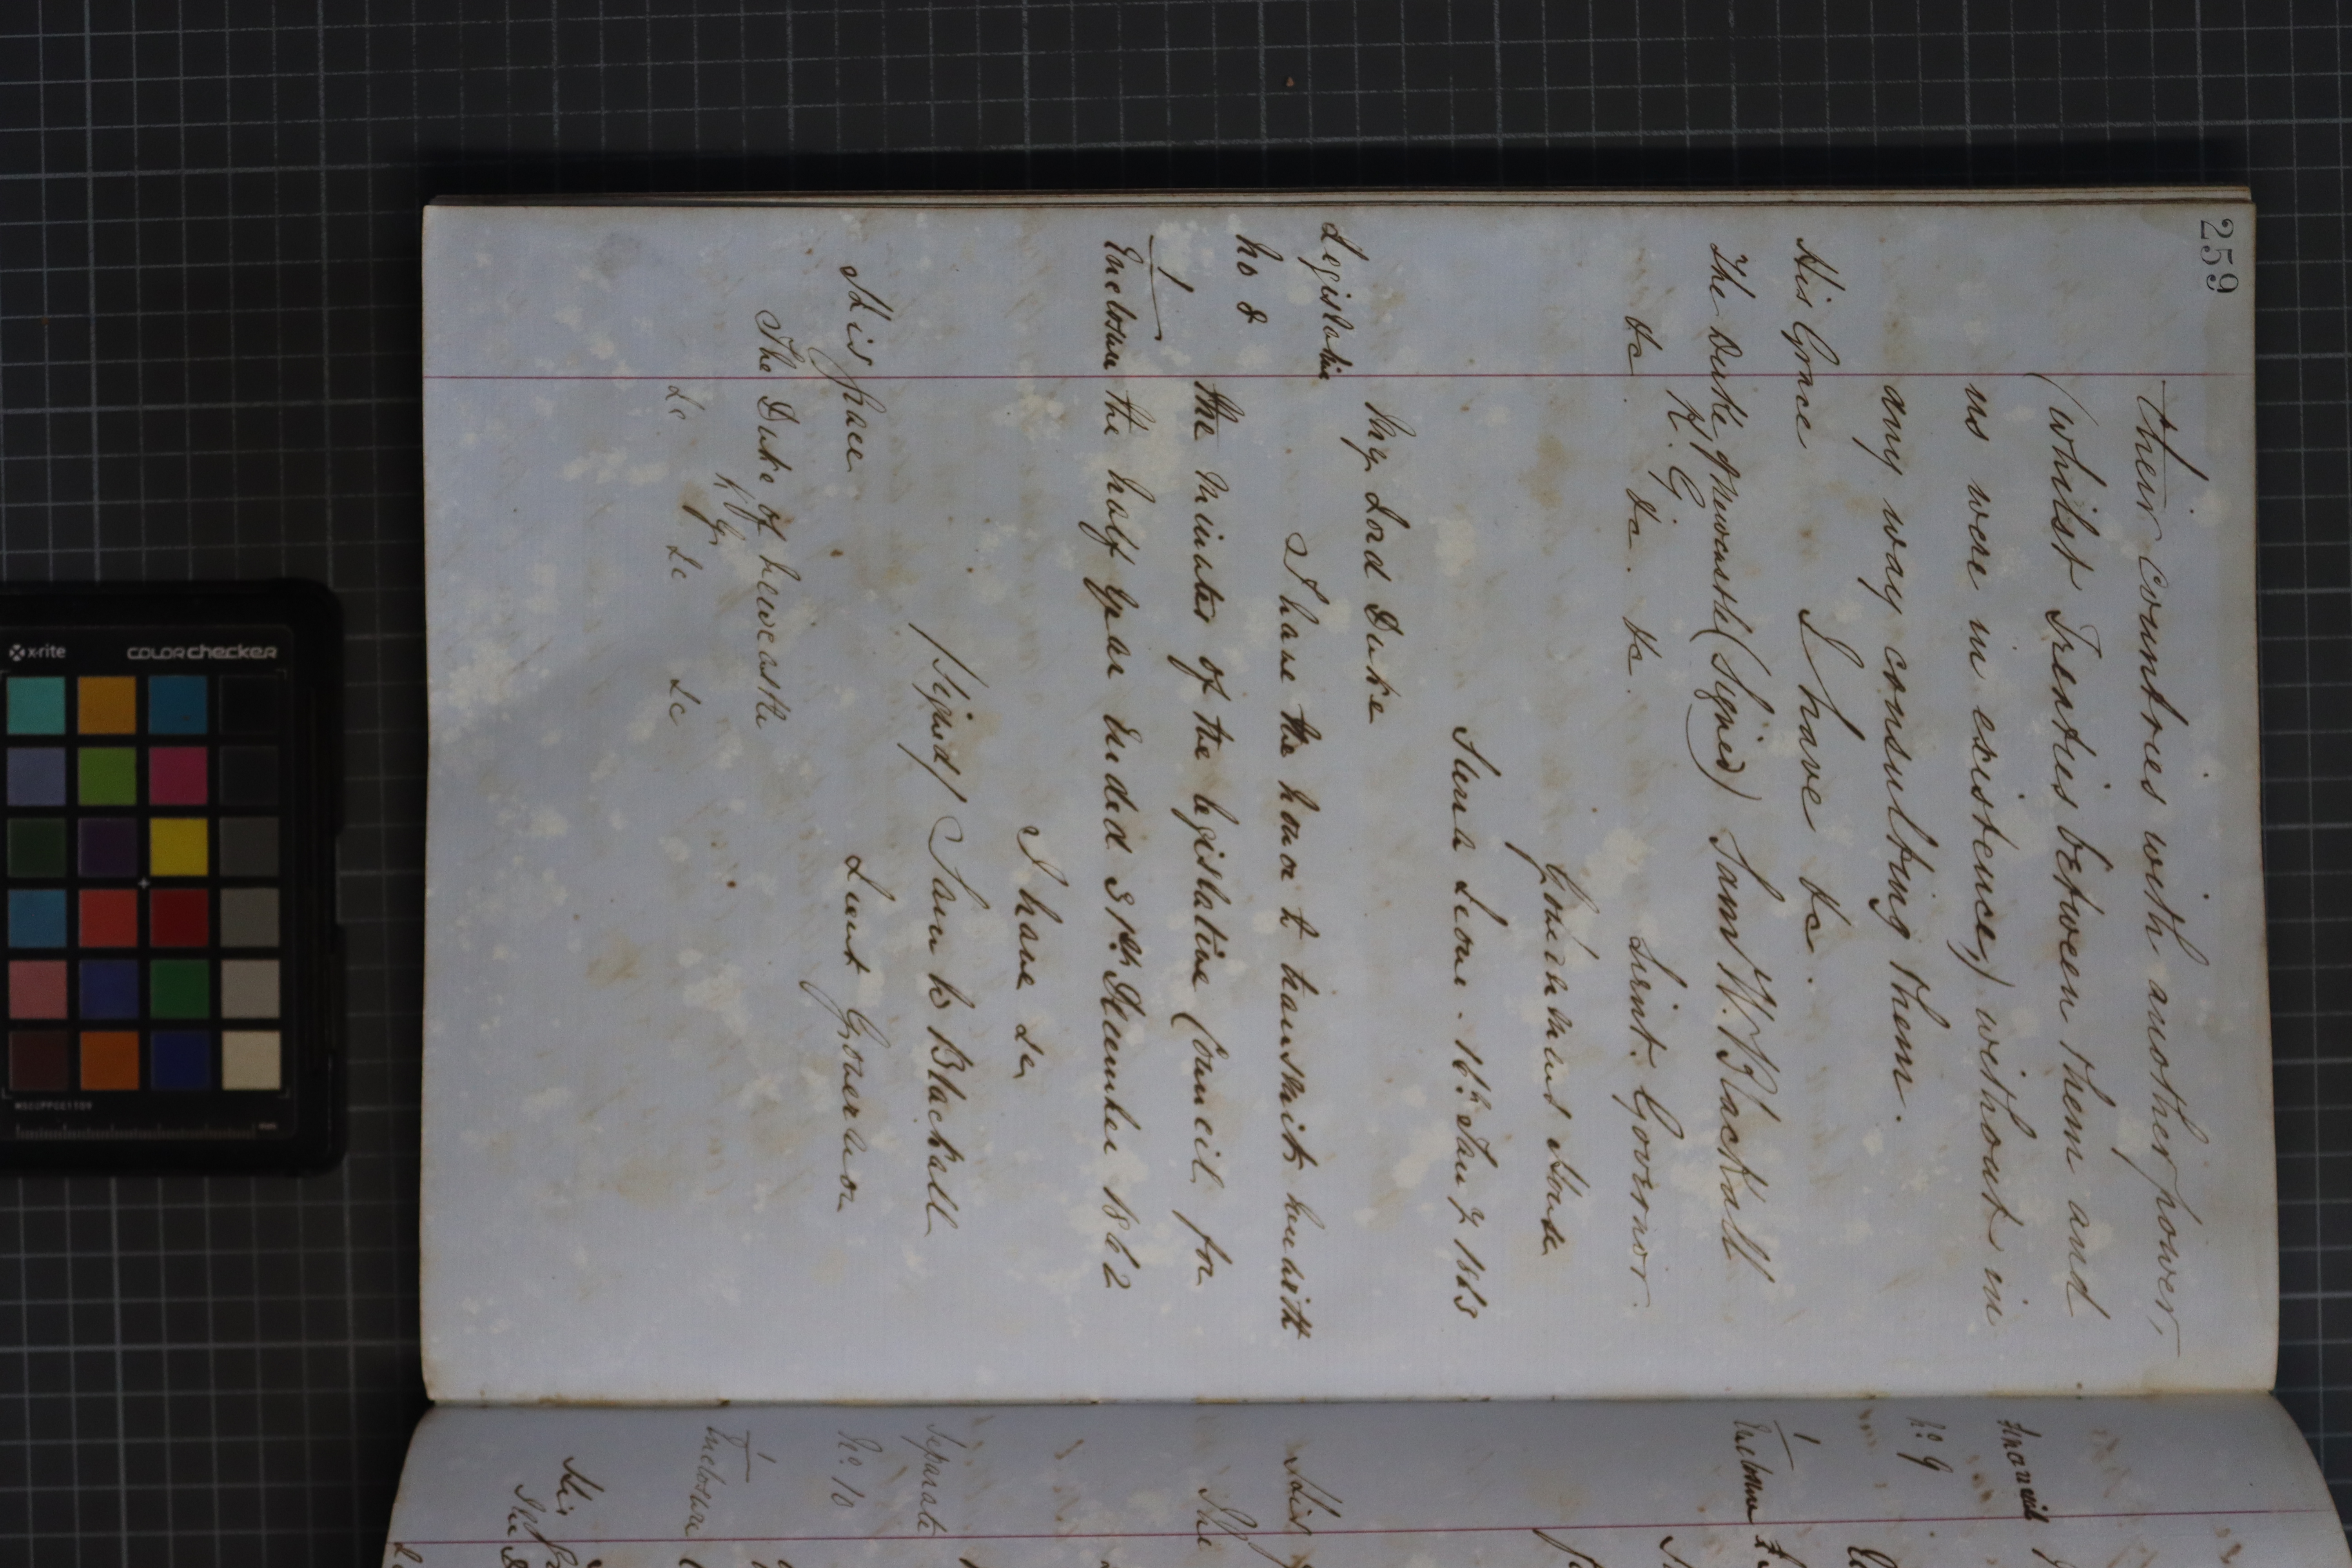 259
their countries with another power,
(whilst Treaties between them and
us were in existence,) without in
any way consulting them.
I have &c.
His Grace
The Duke of Newcastle (Signed) Saml W. Blackall
K. G.
&c. &c. &c. Lieut. Governor.
Government House
Sierra Leone. 16th Jany 1863
My Lord Duke
Legislative
No 8
I have the honor to transmit herewith
the Minutes of the Legislative Council for
1
Enclosure
the half Year Ended 31st December 1862
I have &c
(Signed) Saml W Blackall
Lieut Governor
His Grace
The Duke of Newcastle
K G
&c &c &c
Financial
No 9
1
Enclosure
His
The
Separate
No 10
1
Enclosure
His
The D
x-rite
colorchecker
MSCCPPCC1109